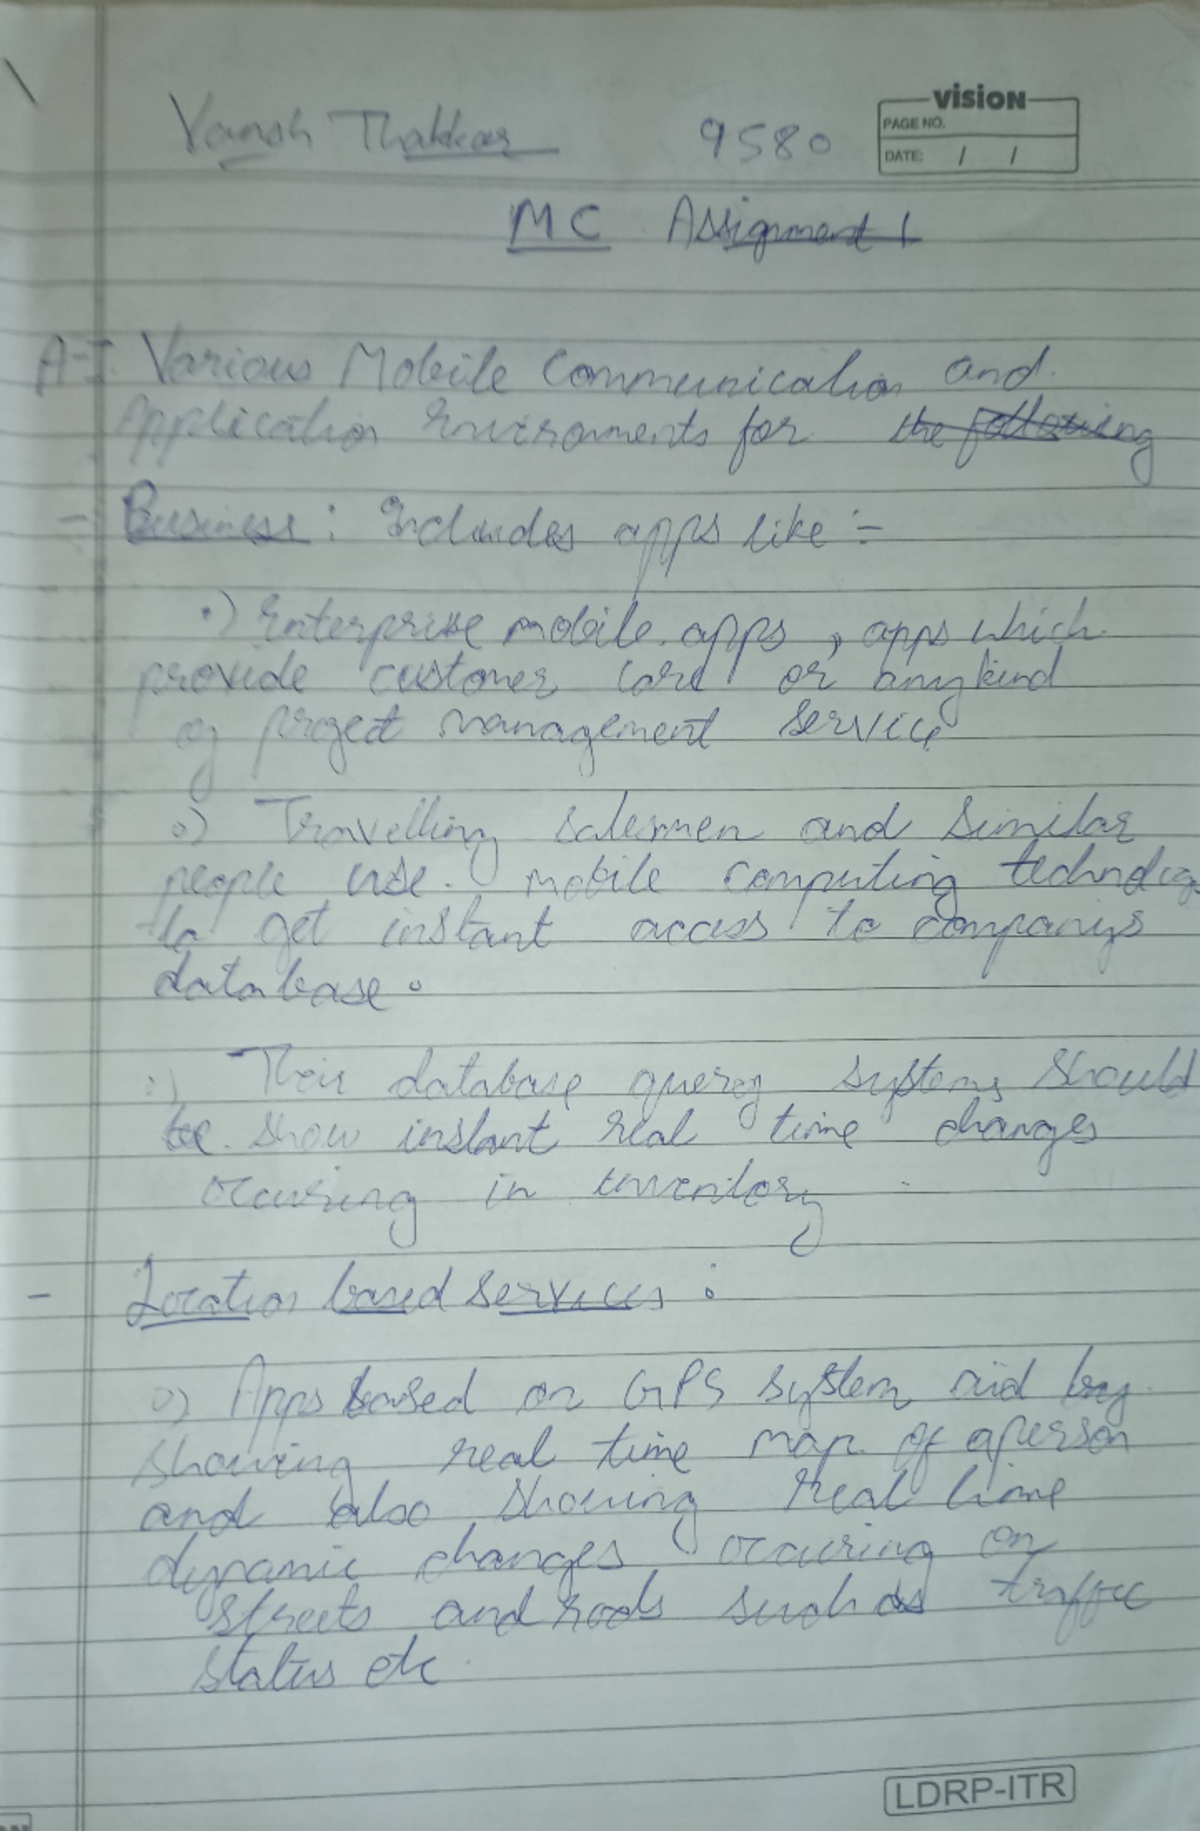 Vansh Thakkar 9580
VISION
PAGE NO.
DATE: / /
MC Assignment 1
A-1. Various Mobile Communication and
Application Environments for the following
- Business : Includes apps like :-
•) Enterprise mobile apps , apps which
provide customer care or any kind
of project management service
o) Travelling salesmen and similar
people use mobile computing technology
to get instant access to companys
database.
:) Their database query systems should
be show instant real time changes
occuring in inventory
- Location based services :
o) Apps based on GPS system aid by
showing real time map of a person
and also showing real time
dynamic changes occuring on
streets and roads such as traffic
status etc.
LDRP-ITR